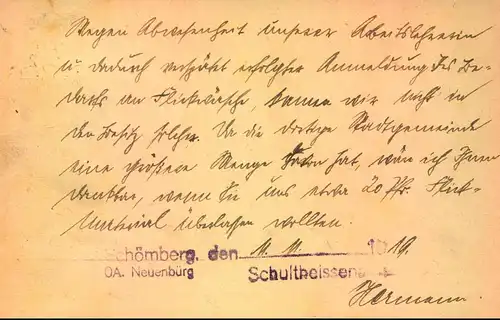 Wegen Abwesenheit unserer Arbeitslehrerin
u. dadurch verspätet erfolgter Anmeldung des Be-
darfs an Flickwäsche, kamen wir nicht in
den Besitz solcher. Da die dortige Stadtgemeinde
eine größere Menge davon hat, wäre ich Ihnen
dankbar, wenn Sie uns etwa 20 Pfd. Flick-
Material überlassen wollten.
Schömberg, den 11. 11. 1919.
OA. Neuenbürg Schultheissen
Hermann.